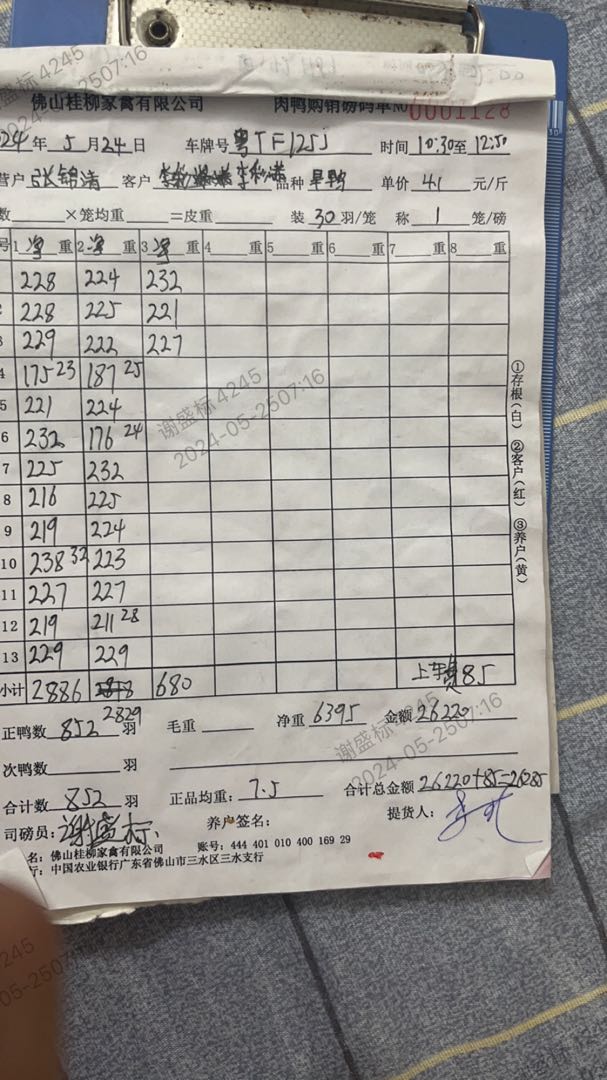 佛山桂柳家禽有限公司 肉鸭购销磅码单NO 0001128
024年5月24日 车牌号 粤TF125J 时间 10:30至12:50
营户 张锦清 客户 品种 旱鸭 单价 41 元/斤
数 ×笼均重 =皮重 装 30 羽/笼 称 1 笼/磅
号 1 净 重 2 净 重 3 净 重 4 重 5 重 6 重 7 重 8 重
228 224 232
228 225 221
3 229 222 227
4 175 23 187 25
5 221 224
6 232 176 24
7 225 232
8 216 225
9 219 224
10 238 32 223
11 227 227
12 219 211 28
13 229 229
小计 2886 2829 680 上车费85
正鸭数 852 羽 毛重 净重 6395 金额 26220
次鸭数 羽
合计数 852 羽 正品均重: 7.5 合计总金额 26220+85=26285
司磅员: 谢盛标 养户签名: 提货人:
名: 佛山桂柳家禽有限公司 账号: 444 401 010 400 169 29
行: 中国农业银行广东省佛山市三水区三水支行
①存根(白) ②客户(红) ③养户(黄)
谢盛标 4245
2024-05-2507:16